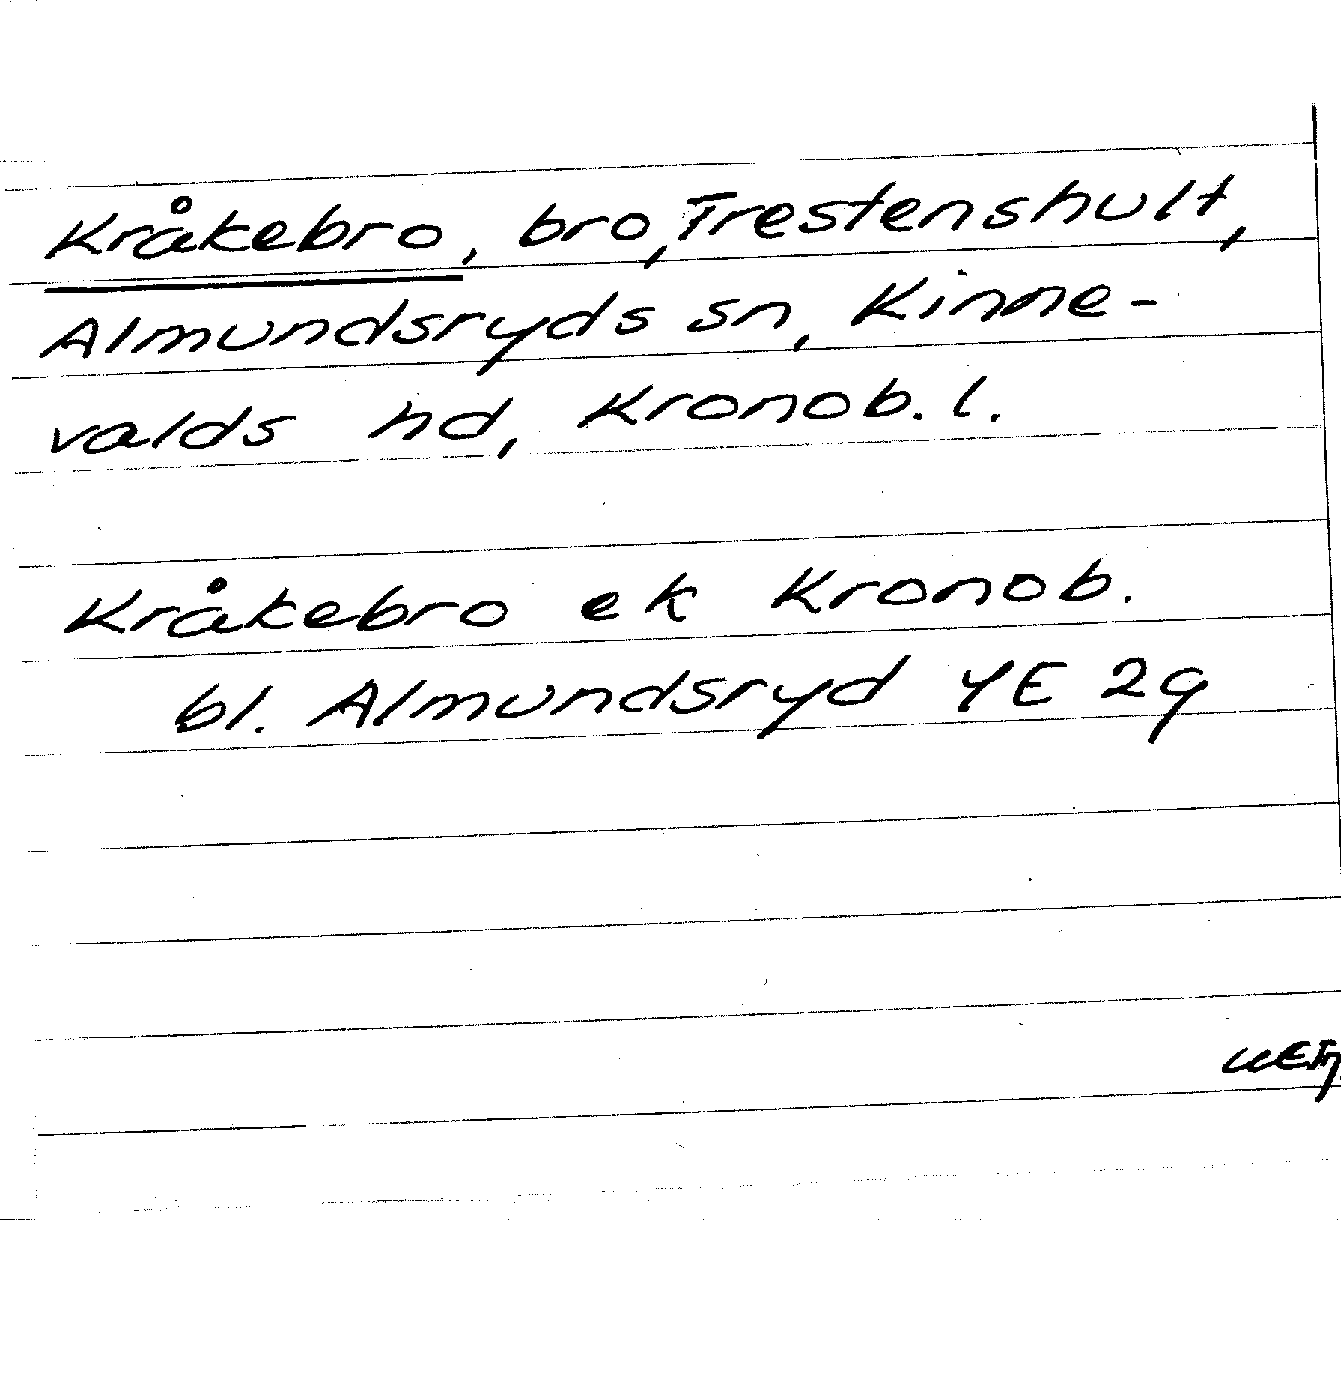 Kråkebro, bro, Trestenshult,
Almundsryds sn, Kinne-
valds hd, Kronob. l.
Kråkebro ek Kronob.
bl. Almundsryd 4E 2g